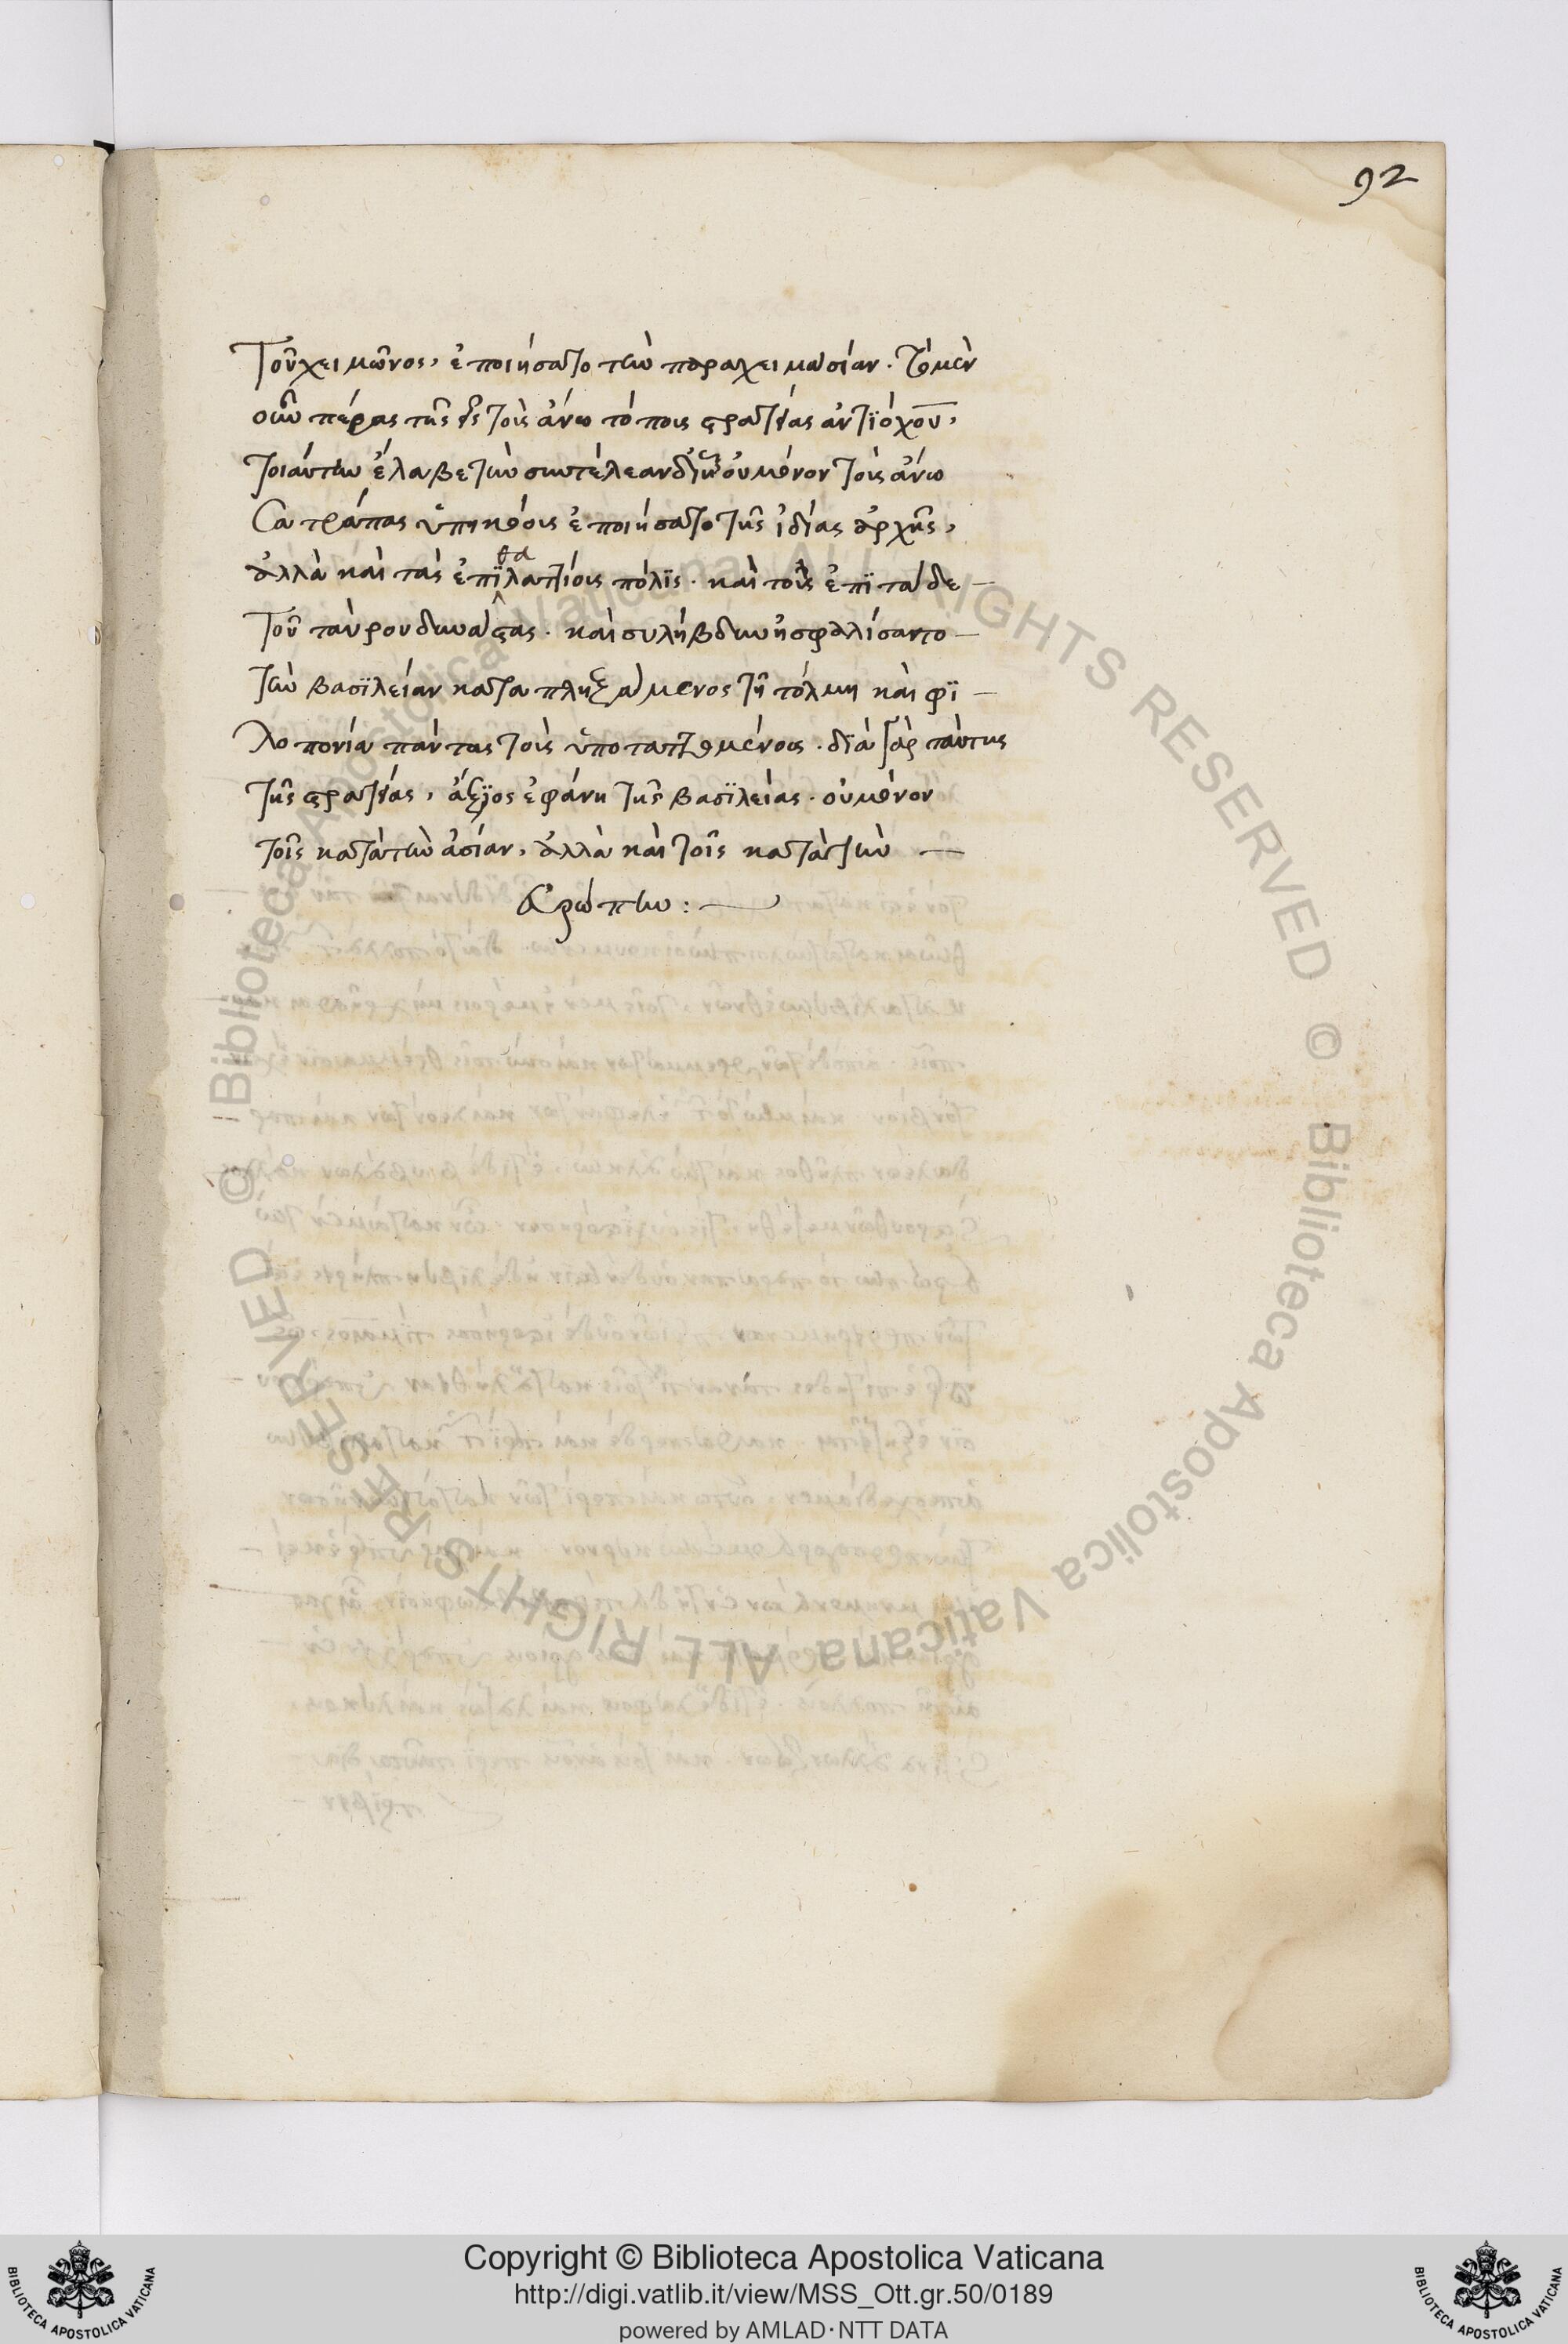 92
Τοῦ χειμῶνος, ἐποιήσατο τὴν παραχειμασίαν. τὸ μὲν
οὖν πέρας τῆς εἰς τοὺς ἄνω τόπους στρατείας ἀντϊόχου,
τοιαύτην ἔλαβε τὴν συντέλειαν δι' ἧς οὐ μόνον τοὺς ἄνω
Σατράπας ὑπηκόους ἐποιήσατο τῆς ἰδίας ἀρχῆς,
ἀλλὰ καὶ τὰς ἐπιθαλαττίους πόλϊς. καὶ τοὺς ἐπὶ τάδε
Τοῦ ταύρου δυνάστας. καὶ συλήβδην ἠσφαλίσαντο
τὴν βασϊλείαν καταπληξάμενος τῇ τόλμῃ καὶ φϊ
λοπονίᾳ πάντας τοὺς ὑποταττομένους. διὰ γὰρ ταύτης
τῆς στρατείας, ἄξϊος ἐφάνη τῆς βασϊλείας. οὐ μόνον
τοῖς κατὰ τὴν ἀσίαν, ἀλλὰ καὶ τοῖς κατὰ τὴν
Εὐρώπην:
Copyright © Biblioteca Apostolica Vaticana
http://digi.vatlib.it/view/MSS_Ott.gr.50/0189
powered by AMLAD·NTT DATA
© Biblioteca Apostolica Vaticana ALL RIGHTS RESERVED
© Biblioteca Apostolica Vaticana ALL RIGHTS RESERVED
BIBLIOTECA APOSTOLICA VATICANA
BIBLIOTECA APOSTOLICA VATICANA